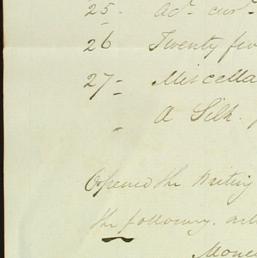 25- Ad. cur.
26 Twenty fiv
27- Miscella
" A Silk.
Opened the Writing
the following. art
Mone